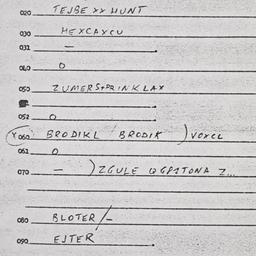 020 TEJBE XX HUNT
030 HEXCAXCU
031 —
040 O
050 ZUMERS+PRINKLAX
052 O
X 060 BRODIKL BRODIK ) VOXCL
061 O
070 — ) ZGULE
080 BLOTER /-
090 EJTER